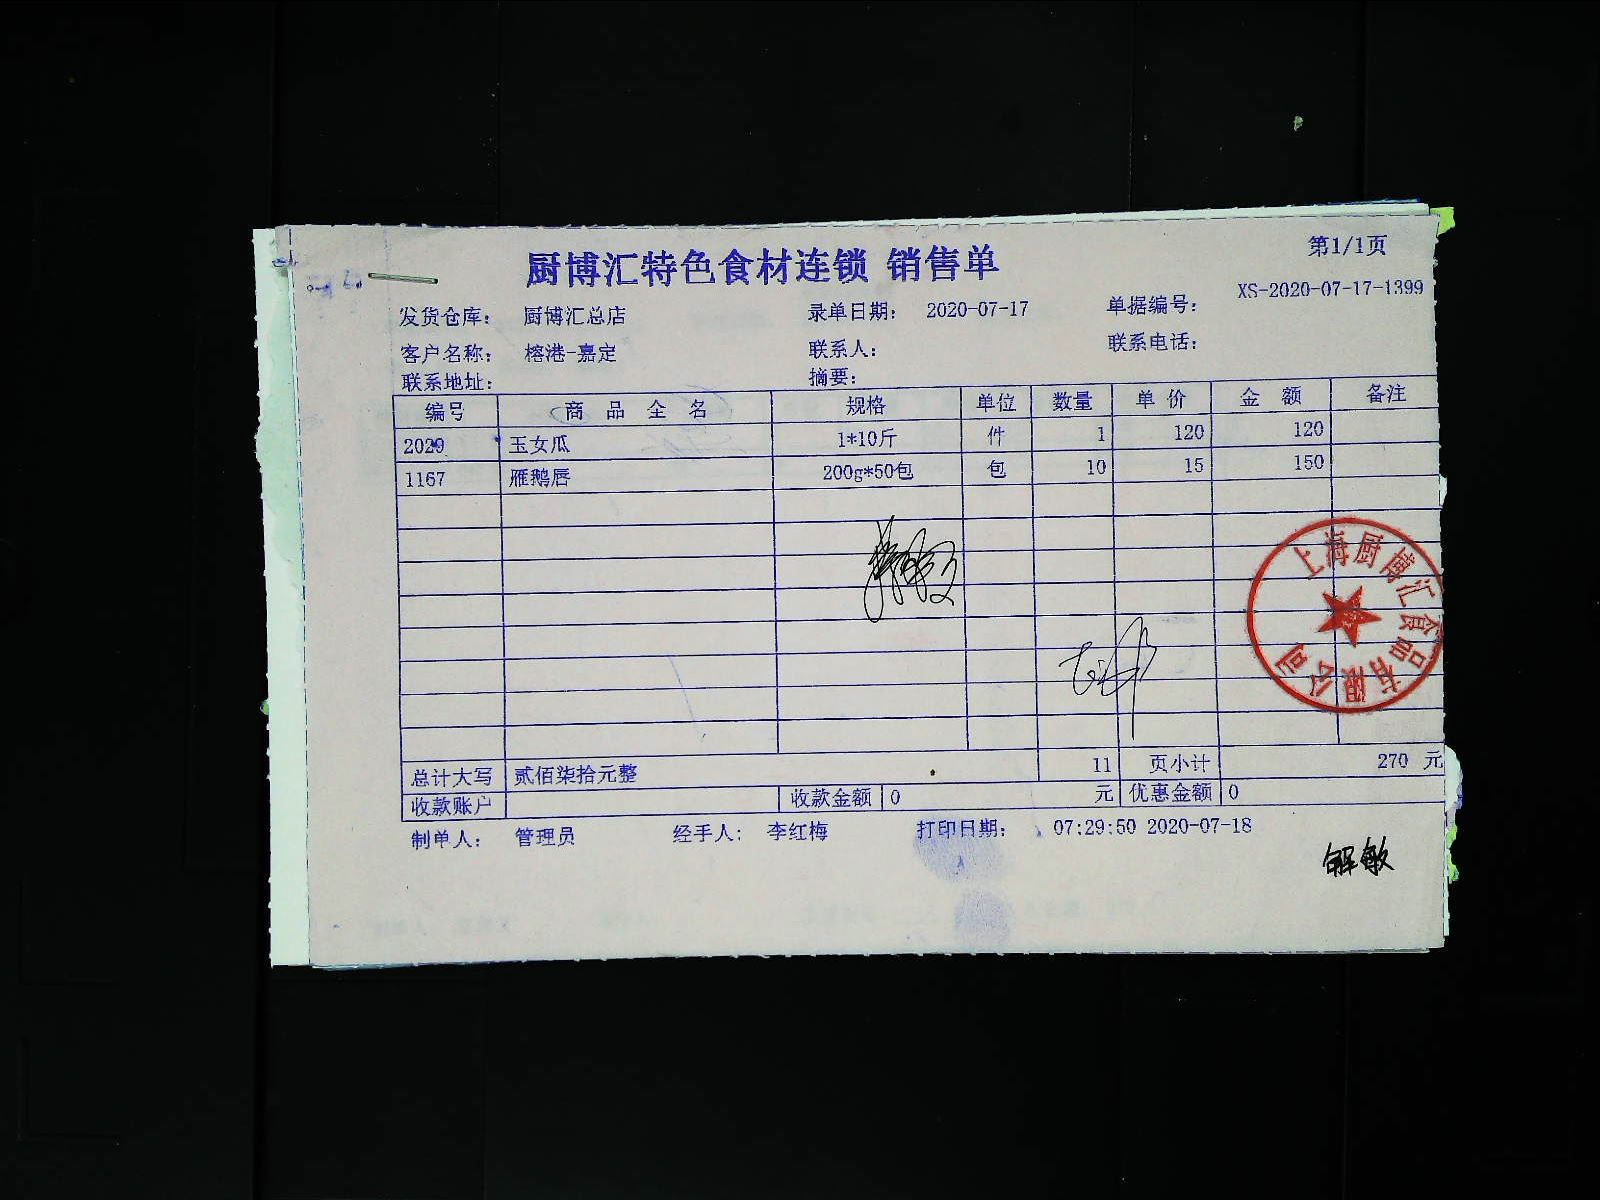 厨博汇特色食材连锁 销售单
第1/1页
发货仓库： 厨博汇总店 录单日期： 2020-07-17 单据编号： XS-2020-07-17-1399
客户名称： 榕港-嘉定 联系人： 联系电话：
联系地址： 摘要：
编号 商品全名 规格 单位 数量 单价 金额 备注
2029 玉女瓜 1*10斤 件 1 120 120
1167 雁鹅唇 200g*50包 包 10 15 150
上海厨博汇食品有限公司
总计大写 贰佰柒拾元整 11 页小计 270 元
收款账户 收款金额 0 元 优惠金额 0
制单人： 管理员 经手人： 李红梅 打印日期： 07:29:50 2020-07-18
解敏